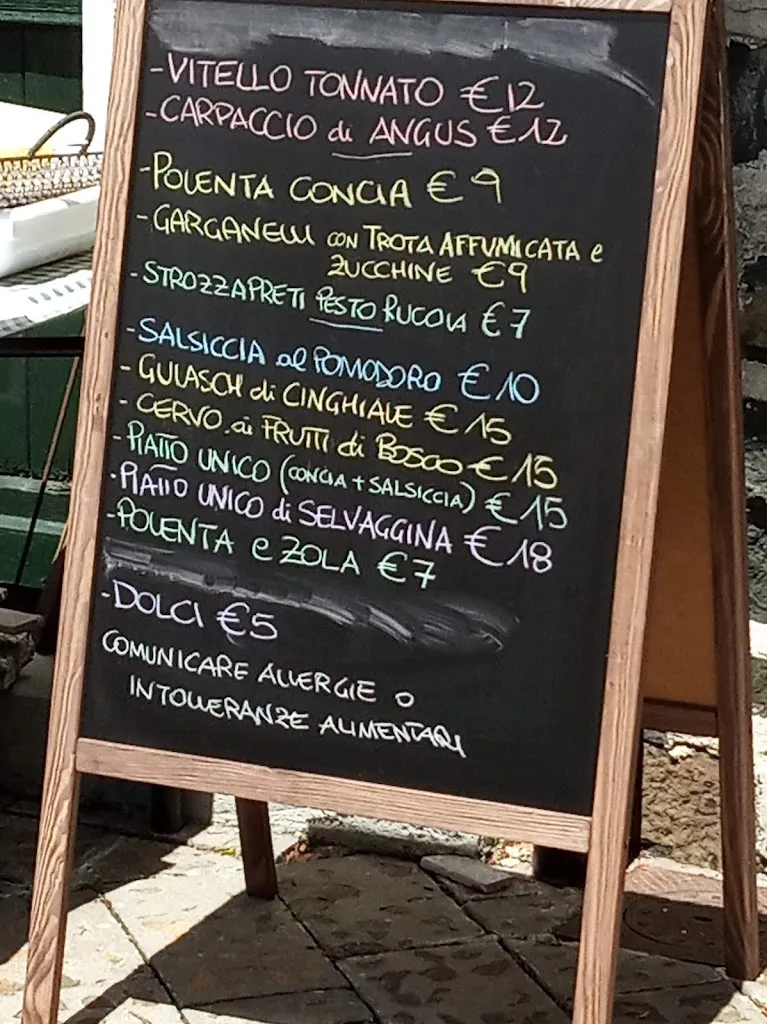 -VITELLO TONNATO €12
-CARPACCIO di ANGUS €12
-POLENTA CONCIA €9
-GARGANELLI CON TROTA AFFUMICATA e
ZUCCHINE €9
-STROZZAPRETI PESTO RUCOLA €7
-SALSICCIA al POMODORO €10
-GULASCH di CINGHIALE €15
-CERVO ai FRUTTI di BOSCO €15
-PIATTO UNICO (CONCIA + SALSICCIA) €15
-PIATTO UNICO di SELVAGGINA €18
-POLENTA e ZOLA €7
-DOLCI €5
COMUNICARE ALLERGIE O
INTOLLERANZE ALIMENTARI